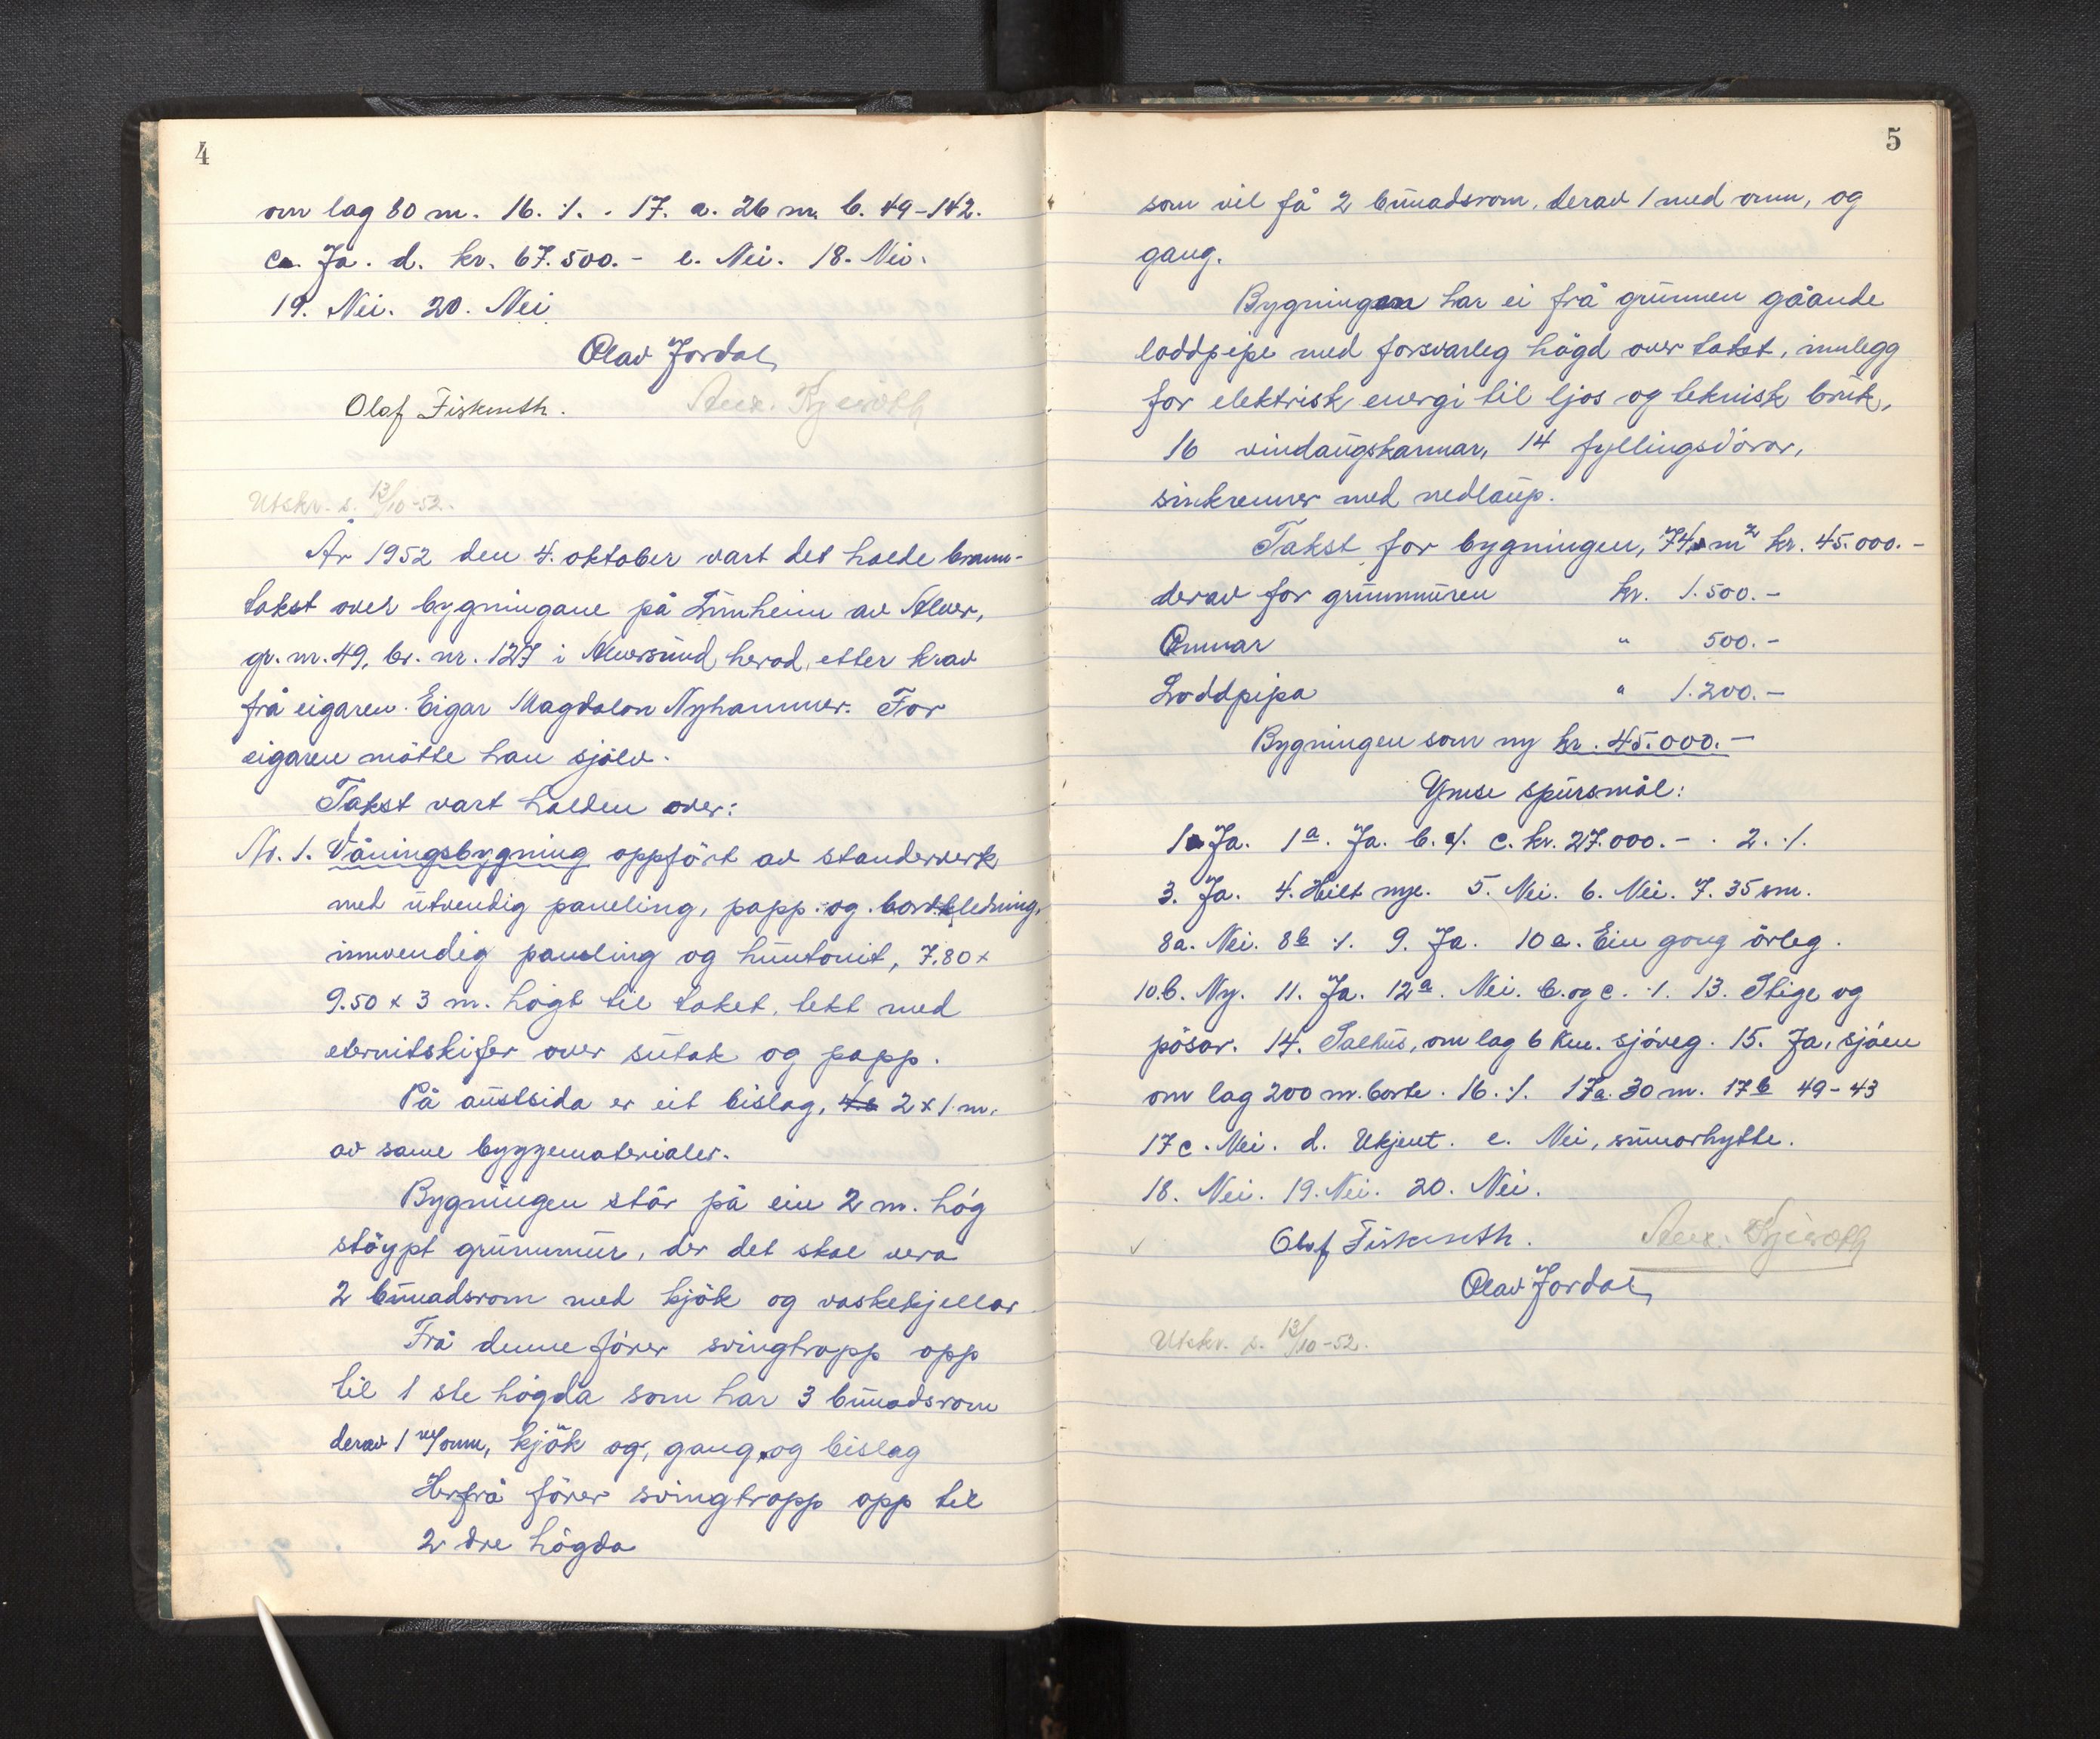 4
om lag 80 m. 16. ./. . 17. a. 26 m. b. 49-142.
c. Ja. d. kr. 67.500.- e. Nei. 18. Nei.
19. Nei. 20. Nei
Olav Jordal
Olaf Fiskeseth.
Utskr. s. 13/10-52.
År 1952 den 4. oktober vart det halde brann-
takst over bygningane på Tunheim av Alver,
gr. nr. 49, br. nr. 127 i Alversund herad, etter krav
frå eigaren. Eigar Magdalon Nyhammer. For
eigaren møtte han sjølv.
Takst vart halden over:
Nr. 1. Våningsbygning oppført av standerverk
med utvendig paneling, papp og bordkledning,
innvendig paneling og huntonit, 7,80 x
9.50 x 3 m. høgt til taket, tekt med
eternitskifer over sutak og papp.
På austsida er eit bislag, 2 x 1 m.
av same byggematerialer.
Bygningen står på ein 2 m. høg
støypt grunnmur, der det skal vera
2 bunadsrom med kjøk og vaskekjellar
Frå denne fører svingtrapp opp
til 1 ste høgda som har 3 bunadsrom
derav 1 m/omn, kjøk og, gang, og bislag
Herfrå fører svingtrapp opp til
2 dre høgda
5
som vil få 2 bunadsrom, derav 1 med omn, og
gang.
Bygningen har ei frå grunnen gåande
loddpipe med forsvarleg høgd over takst, innlegg
for elektrisk energi til ljos og teknisk bruk,
16 vindaugskarmar, 14 fyllingsdører,
sinkrenner med nedlaup.
Takst for bygningen, 74 m² kr. 45.000.-
derav for grunnmuren kr. 1.500.-
Omnar " 500.-
Loddpipa " 1.200.-
Bygningen som ny kr. 45.000.-
Ymse spursmål:
1. Ja. 1a. Ja. b. ./. c. kr. 27.000.- . 2. ./.
3. Ja. 4. Heilt nye. 5. Nei. 6. Nei. 7. 35 sm.
8a. Nei. 8b ./. 9. Ja. 10a. Ein gong årleg.
10.b. Ny. 11. Ja. 12a. Nei. b. og c. ./. 13. Stige og
pøsar. 14. Salhus, om lag 6 km. sjøveg. 15. Ja, sjøen
om lag 200 m. borte. 16. ./. 17a. 30 m. 17b 49-43
17c. Nei. d. Ukjent. e. Nei, sumarhytte.
18. Nei. 19. Nei. 20. Nei.
Olaf Fiskeseth.
Olav Jordal
Utskr. s. 13/10-52.